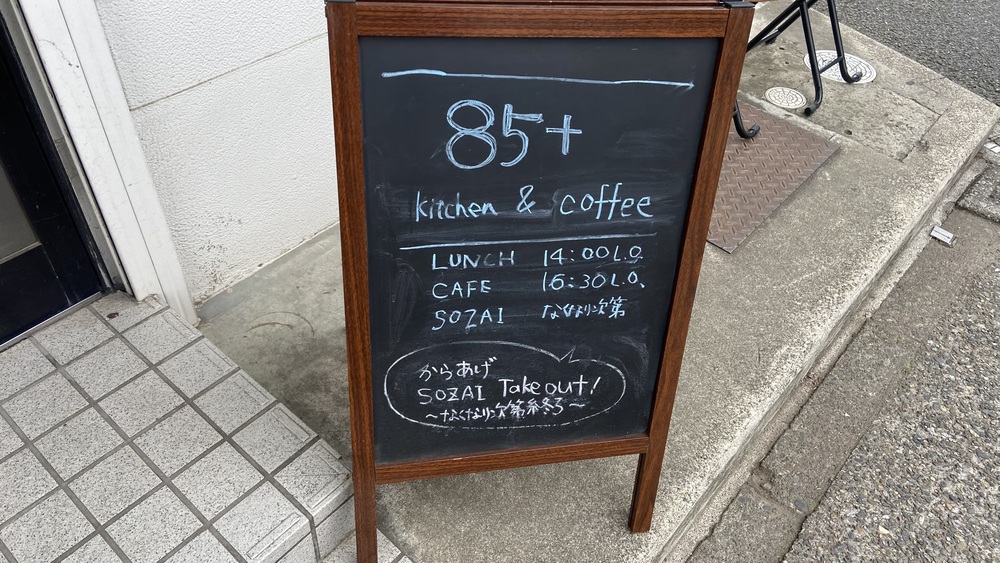 85+
kitchen & coffee
LUNCH 14:00 L.O.
CAFE 16:30 L.O.
SOZAI なくなり次第
からあげ
SOZAI Take out!
~なくなり次第終了~